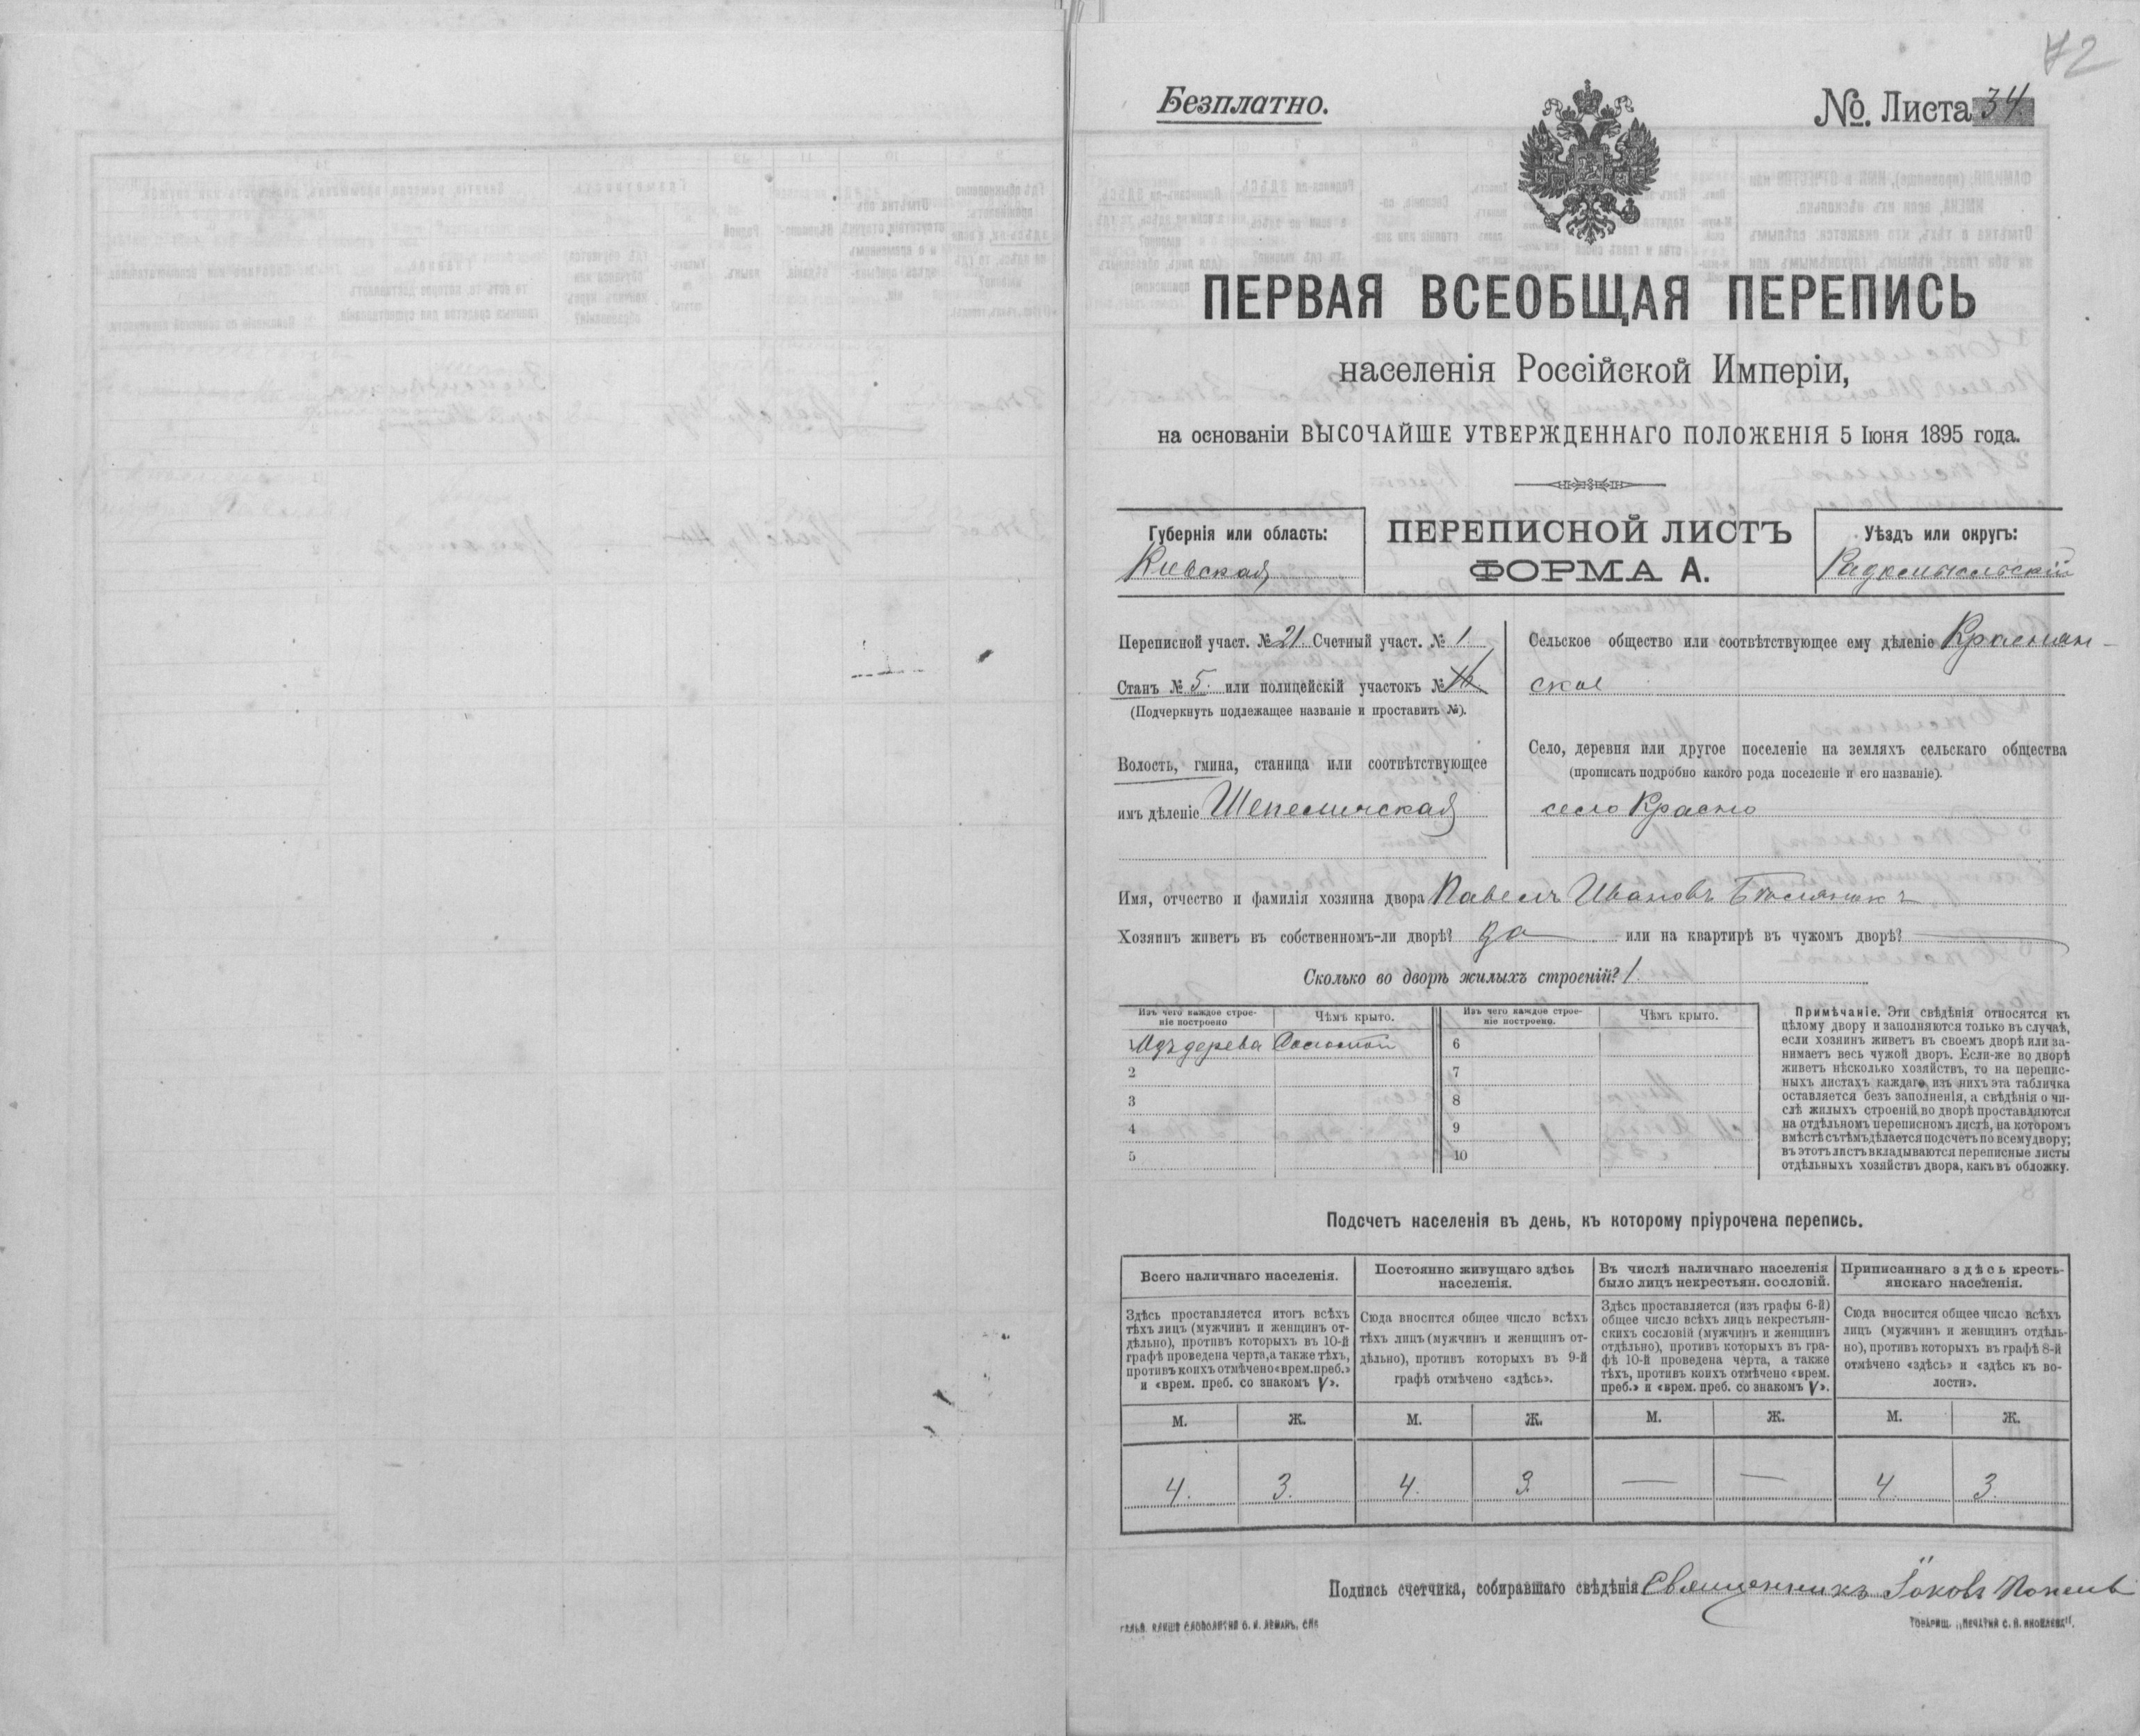 72
Безплатно.
№ Листа 34
ПЕРВАЯ ВСЕОБЩАЯ ПЕРЕПИСЬ
населенія Россійской Имперіи,
на основаніи ВЫСОЧАЙШЕ УТВЕРЖДЕННАГО ПОЛОЖЕНІЯ 5 Іюня 1895 года.
Губернія или область:
Кіевская
ПЕРЕПИСНОЙ ЛИСТЪ
ФОРМА А.
Уѣздъ или округъ:
Радомысльскій
Переписной участ. № 21 Счетный участ. № 1.
Станъ № 5. или полицейскій участокъ №
(Подчеркнуть подлежащее названіе и проставить №).
Волость, гмина, станица или соотвѣтствующее
имъ дѣленіе Шепеличская
Сельское общество или соотвѣтствующее ему дѣленіе Краснян-
ское
Село, деревня или другое поселеніе на земляхъ сельскаго общества
(прописать подробно какого рода поселеніе и его названіе).
село Красно
Имя, отчество и фамилія хозяина двора Павелъ Ивановъ
Хозяинъ живетъ въ собственномъ-ли дворѣ? да или на квартирѣ въ чужомъ дворѣ?
Сколько во дворѣ жилыхъ строеній? 1.
Изъ чего каждое строе-
ніе построено
Чѣмъ крыто.
Изъ чего каждое строе-
ніе построено.
Чѣмъ крыто.
1 Изъ дерева Соломой
6
2
7
3
8
4
9
5
10
Примѣчаніе. Эти свѣдѣнія относятся къ
цѣлому двору и заполняются только въ случаѣ,
если хозяинъ живетъ въ своемъ дворѣ или за-
нимаетъ весь чужой дворъ. Если-же во дворѣ
живетъ нѣсколько хозяйствъ, то на перепис-
ныхъ листахъ каждаго изъ нихъ эта табличка
оставляется безъ заполненія, а свѣдѣнія о чи-
слѣ жилыхъ строеній во дворѣ проставляются
на отдѣльномъ переписномъ листѣ, на которомъ
вмѣстѣ съ тѣмъ дѣлается подсчетъ по всему двору;
въ этотъ листъ вкладываются переписные листы
отдѣльныхъ хозяйствъ двора, какъ въ обложку.
Подсчетъ населенія въ день, къ которому пріурочена перепись.
Всего наличнаго населенія.
Постоянно живущаго здѣсь
населенія.
Въ числѣ наличнаго населенія
было лицъ некрестьян. сословій.
Приписаннаго здѣсь кресть-
янскаго населенія.
Здѣсь проставляется итогъ всѣхъ
тѣхъ лицъ (мужчинъ и женщинъ от-
дѣльно), противъ которыхъ въ 10-й
графѣ проведена черта, а также тѣхъ,
противъ коихъ отмѣчено «врем. преб.»
и «врем. преб. со знакомъ V».
Сюда вносится общее число всѣхъ
тѣхъ лицъ (мужчинъ и женщинъ от-
дѣльно), противъ которыхъ въ 9-й
графѣ отмѣчено «здѣсь».
Здѣсь проставляется (изъ графы 6-й)
общее число всѣхъ лицъ некрестьян-
скихъ сословій (мужчинъ и женщинъ
отдѣльно), противъ которыхъ въ гра-
фѣ 10-й проведена черта, а также
тѣхъ, противъ коихъ отмѣчено «врем.
преб.» и «врем. преб. со знакомъ V».
Сюда вносится общее число всѣхъ
лицъ (мужчинъ и женщинъ отдѣль-
но), противъ которыхъ въ графѣ 8-й
отмѣчено «здѣсь» и «здѣсь къ во-
лости».
М. Ж. М. Ж. М. Ж. М. Ж.
4. 3. 4. 3. — — 4. 3.
Подпись счетчика, собиравшаго свѣдѣнія Священникъ Іаковъ
ГАЛЬВ. КЛИШЕ СЛОВОЛИТНИ О. И. ЛЕМАНЪ, СПБ
ТОВАРИЩ. „ПЕЧАТНЯ С. П. ЯКОВЛЕВА".